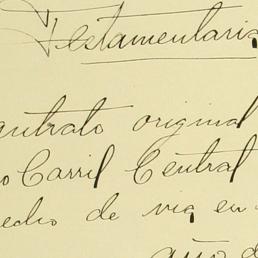 Testamentaria
ntrato original
o Carril Central
edio de via en
año d